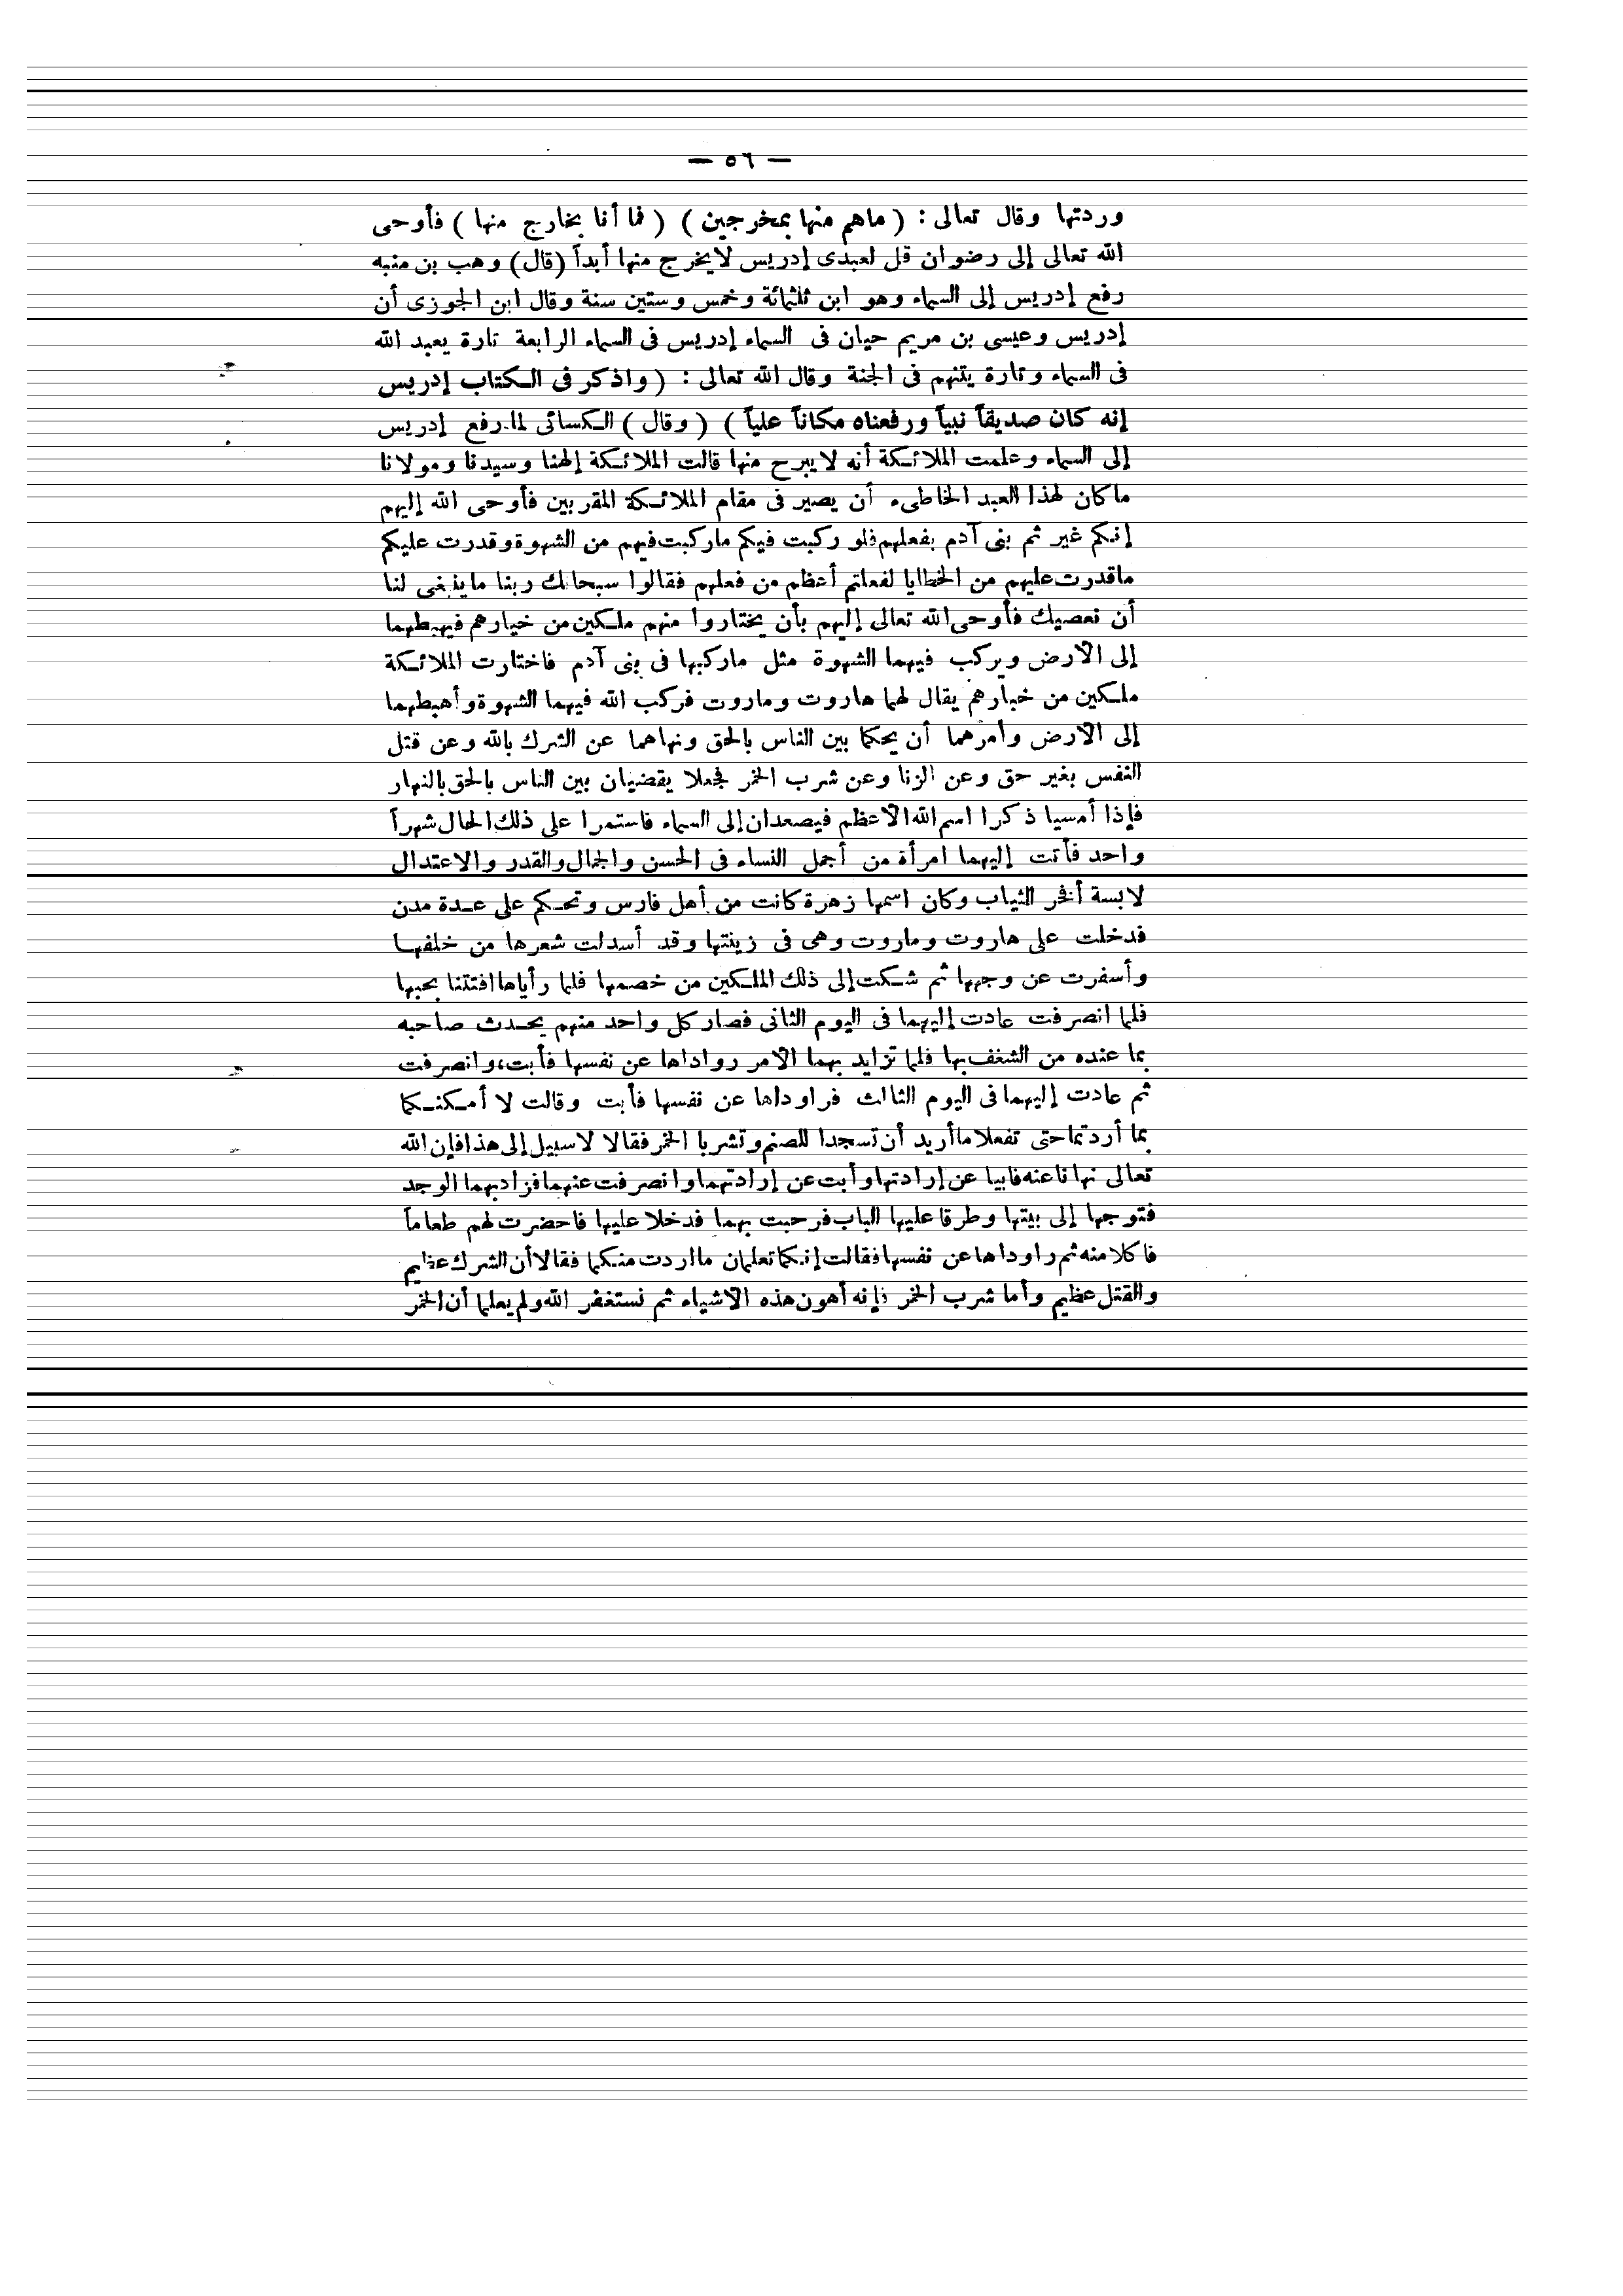 — ٥٦ —
وردتها وقال تعالى : ( ماهم منها بمخرجين ) ( فما أنا بخارج منها ) فأوحى
الله تعالى إلى رضوان قل لعبدى إدريس لايخرج منها أبداً (قال) وهب بن منبه
رفع إدريس إلى السماء وهو ابن ثلثمائة وخمس وستين سنة وقال ابن الجوزى أن
إدريس وعيسى بن مريم حيان فى السماء إدريس فى السماء الرابعة تارة يعبد الله
فى السماء وتارة يتنهم فى الجنة وقال الله تعالى : ( واذكر فى الكتاب إدريس
إنه كان صديقاً نبياً ورفعناه مكاناً علياً ) ( وقال ) الكسائى لما رفع إدريس
إلى السماء وعلمت الملائكة أنه لايبرح منها قالت الملائكة إلهنا وسيدنا ومولانا
ماكان لهذا العبد الخاطىء أن يصير فى مقام الملائكة المقربين فأوحى الله إليهم
إنكم غير ثم بنى آدم بفعلهم فلو ركبت فيكم ماركبت فيهم من الشهوة وقدرت عليكم
ماقدرت عليهم من الخطايا لفعلتم أعظم من فعلهم فقالوا سبحانك ربنا ماينبغى لنا
أن نعصيك فأوحى الله تعالى إليهم بأن يختاروا منهم ملكين من خيارهم فيهبطهما
إلى الارض ويركب فيهما الشهوة مثل ماركبها فى بنى آدم فاختارت الملائكة
ملكين من خيارهم يقال لهما هاروت وماروت فركب الله فيهما الشهوة وأهبطهما
إلى الارض وأمرهما أن يحكما بين الناس بالحق ونهاهما عن الشرك بالله وعن قتل
النفس بغير حق وعن الزنا وعن شرب الخمر فجعلا يقضيان بين الناس بالحق بالنهار
فإذا أمسيا ذكرا اسم الله الاعظم فيصعدان إلى السماء فاستمرا على ذلك الحال شهراً
واحد فأتت إليهما امرأة من أجمل النساء فى الحسن والجمال والقدر والاعتدال
لابسة أفخر الثياب وكان اسمها زهرة كانت من أهل فارس وتحكم على عدة مدن
فدخلت على هاروت وماروت وهى فى زينتها وقد أسدلت شعرها من خلفها
وأسفرت عن وجهها ثم شكت إلى ذلك الملكين من خصمها فلما رأياها افتتنا بحبها
فلما انصرفت عادت إليهما فى اليوم الثانى فصار كل واحد منهم يحدث صاحبه
بما عنده من الشغف بها فلما تزايد بهما الامر رواداها عن نفسها فأبت، وانصرفت
ثم عادت إليهما فى اليوم الثالث فراوداها عن نفسها فأبت وقالت لا أمكنكما
بما أردتما حتى تفعلا ما أريد أن تسجدا للصنم وتشربا الخمر فقالا لاسبيل إلى هذا فإن الله
تعالى نهانا عنه فابيا عن إرادتها وأبت عن إرادتهما وانصرفت عنهما فزاد بهما الوجد
فتوجها إلى بيتها وطرقا عليها الباب فرحبت بهما فدخلا عليها فاحضرت لهم طعاماً
فاكلا منه ثم راوداها عن نفسها فقالت إنكما تعلمان ما اردت منكما فقالا أن الشرك عظيم
والقتل عظيم وأما شرب الخمر فإنه أهون هذه الاشياء ثم نستغفر الله ولم يعلما أن الخمر